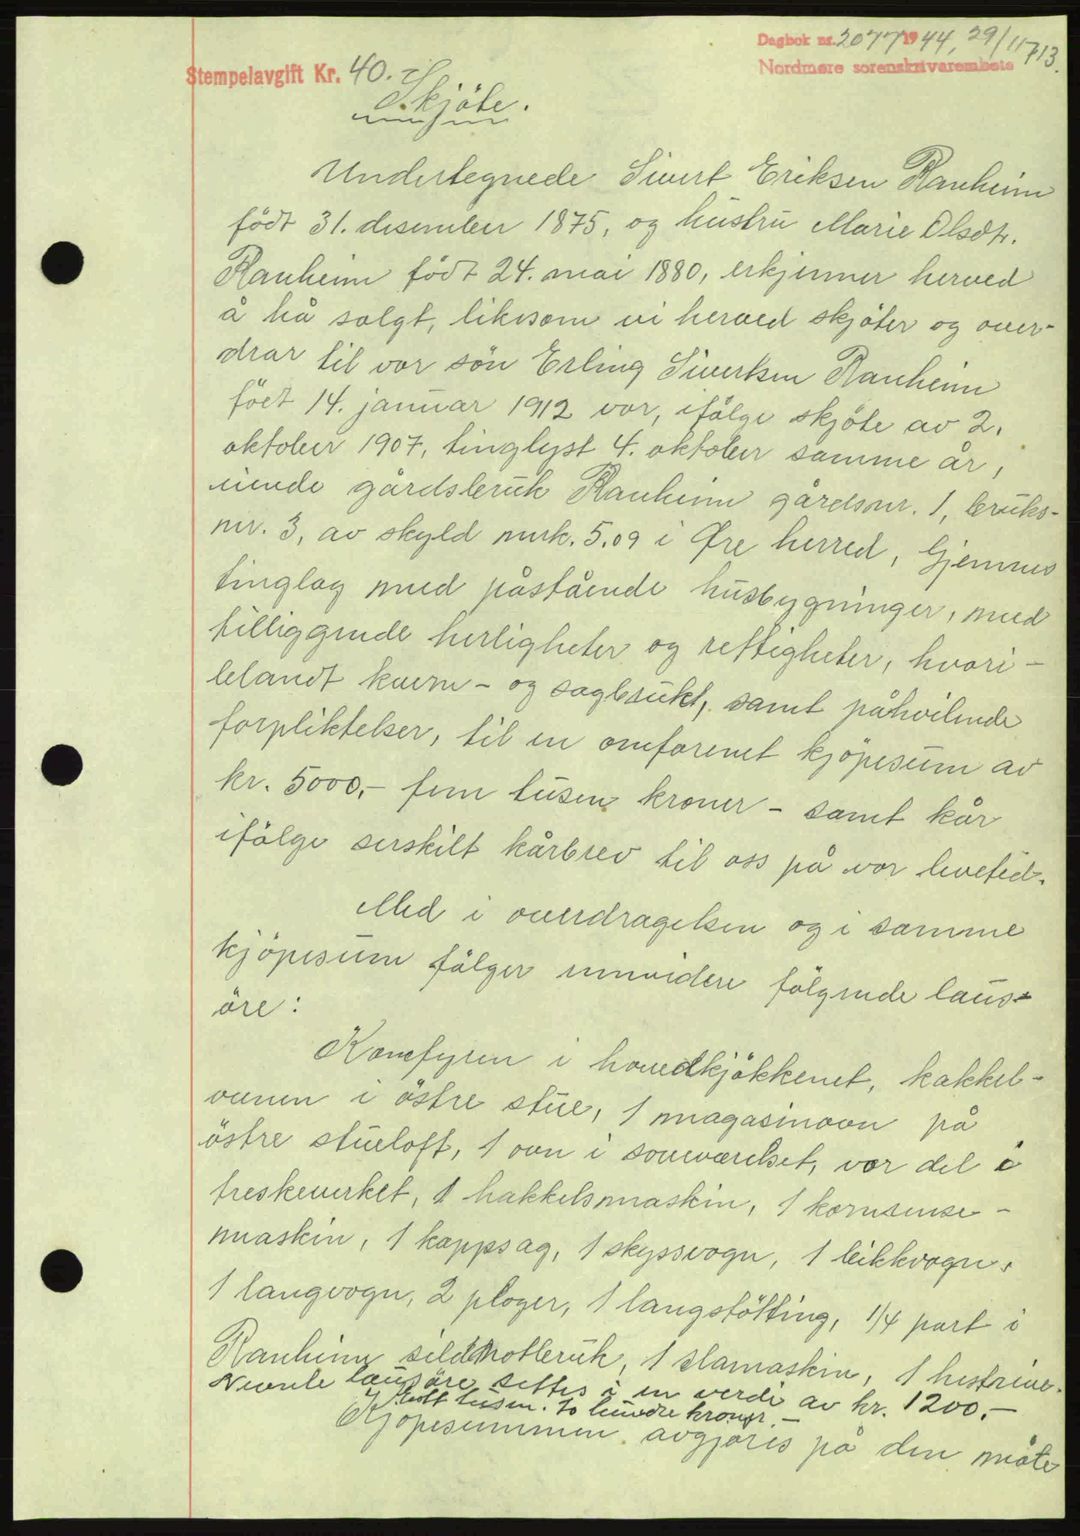 Dagbok nr. 2077 1944, 29/11 713.
Nordmøre sorenskrivarembete
Stempelavgift Kr. 40.-
Skjöte.
Undertegnede Sivert Eriksen Ranheim
födt 31. desember 1875, og hustru Marie Olsdtr.
Ranheim födt 24. mai 1880, erkjenner herved
å ha solgt, likesom vi herved skjöter og over-
drar til vor sön Erling Sivertsen Ranheim
födt 14. januar 1912 vor, ifölge skjöte av 2.
oktober 1907, tinglyst 4. oktober samme år,
eiende gårdsbruk Ranheim gårdsnr. 1, bruks-
nr. 3, av skyld mrk. 5.09 i Øre herred, Gjemnes
tinglag med påstående husbygninger, med
tilliggende herligheter og rettigheter, hvori-
blandt kvern- og sagbrukt, samt påhvilende
forpliktelser, til en omforenet kjöpesum av
kr. 5000,- fem tusen kroner - samt kår
ifölge serskilt kårbrev til oss på vor levetid.
Med i overdragelsen og i samme
kjöpesum fölger emnvidere fölgende laus-
öre:
Komfyren i hovedkjökkenet, kakkel-
ovnen i östre stue, 1 magasinovn på
östre stueloft, 1 ovn i soveværelset, vor del i
treskeverket, 1 hakkelsmaskin, 1 kornrense-
maskin, 1 kappsag, 1 skyssvogn, 1 leikkvogn,
1 langvogn, 2 ploger, 1 langstötting, 1/4 part i
Ranheim sildnotbruk, 1 slamaskin, 1 hestrive.
Nevnte lausöre settes i en verdi av kr. 1200.-
tolv hundre kroner.-
Kjöpesummen avgjöres på den måte